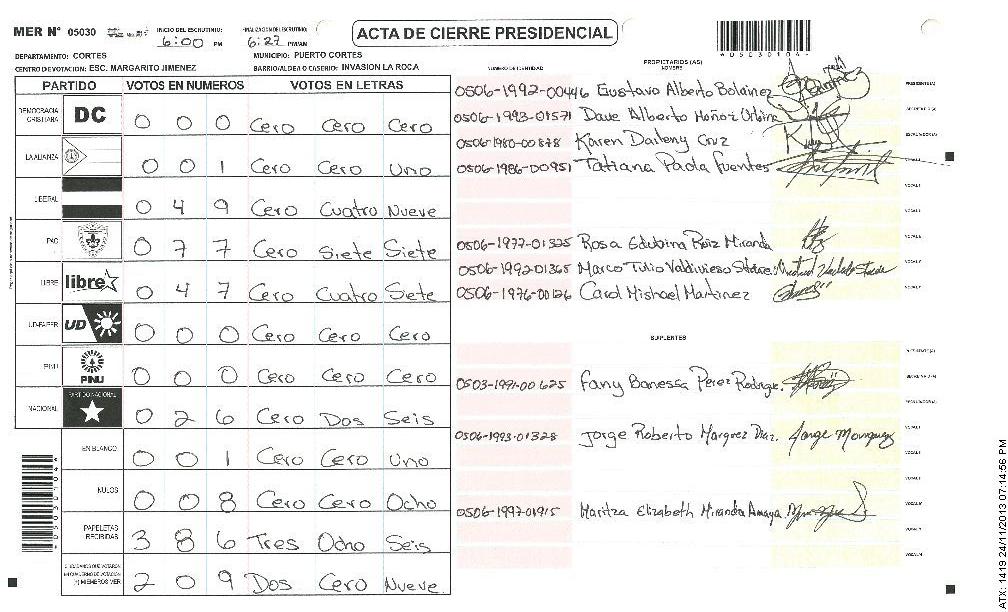 MER Nº 05030 INICIO DEL ESCRUTINIO: 6:00 PM FINALIZACION DEL ESCRUTINIO: 6:27 PM/AM ACTA DE CIERRE PRESIDENCIAL
DEPARTAMENTO: CORTES MUNICIPIO: PUERTO CORTES
CENTRO DE VOTACION: ESC. MARGARITO JIMENEZ BARRIO/ALDEA O CASERIO: INVASION LA ROCA
PARTIDO VOTOS EN NUMEROS VOTOS EN LETRAS
DEMOCRACIA CRISTIANA DC 0 0 0 Cero Cero Cero
LA ALIANZA 0 0 1 Cero Cero Uno
LIBERAL 0 4 9 Cero Cuatro Nueve
PAC 0 7 7 Cero Siete Siete
LIBRE libre 0 4 7 Cero Cuatro Siete
UD-FAPER UD 0 0 0 Cero Cero Cero
PINU PINU 0 0 0 Cero Cero Cero
NACIONAL PARTIDO NACIONAL 0 2 6 Cero Dos Seis
EN BLANCO 0 0 1 Cero Cero Uno
NULOS 0 0 8 Cero Cero Ocho
PAPELETAS RECIBIDAS 3 8 6 Tres Ocho Seis
CIUDADANOS QUE VOTARON EN CUADERNO DE VOTACION (+) MIEMBROS MER 2 0 9 Dos Cero Nueve
NUMERO DE IDENTIDAD PROPIETARIOS (AS)
NOMBRE
0506-1992-00446 Gustavo Alberto Bolainez PRESIDENTE(A)
0506-1993-01571 Dave Alberto Muñoz Urbina SECRETARIO(A)
0506-1980-00848 Karen Darleny Cruz ESCRUTADOR(A)
0506-1986-00951 Tatiana Paola Fuentes VOCAL I
0506-1977-01325 Rosa Edubina Ruiz Miranda
0506-1992-01365 Marco Tulio Valdivieso
0506-1976-00126 Carol Mishael Martinez
SUPLENTES
PRESIDENTE(A)
0503-1991-00625 Fany Banessa Perez SECRETARIO(A)
ESCRUTADOR(A)
0506-1993-01328 Jorge Roberto Marquez Diaz. VOCAL I
0506-1997-01915 Maritza Elizabeth Miranda Amaya
ATX: 1419 24/11/2013 07:14:56 PM